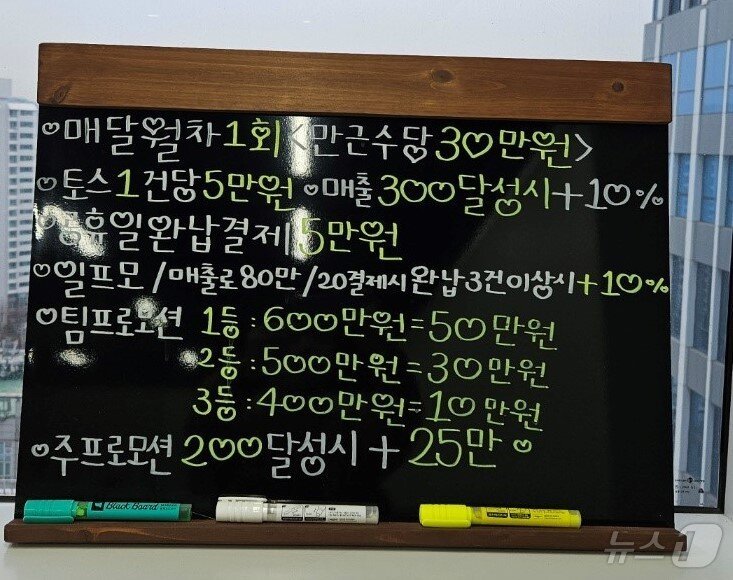 매달월차1회<만근수당30만원>
토스1건당5만원 매출300달성시+10%
공휴일완납결제 5만원
일프모/매출로80만/20결제시완납3건이상시+10%
팀프로모션 1등:600만원=50만원
2등:500만원=30만원
3등:400만원=10만원
주프로모션 200달성시+25만
Black Board
뉴스1